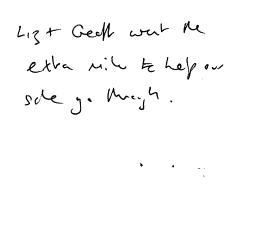 Liz + Geoff went the
extra mile to help our
sale go through.